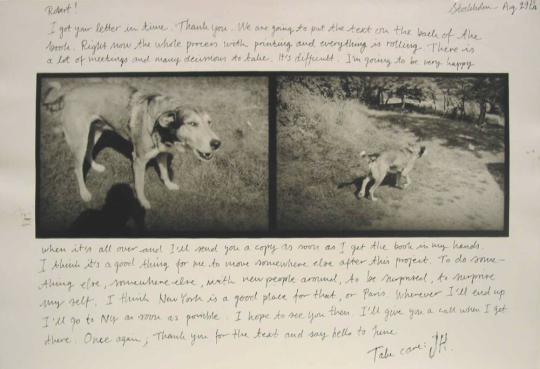 Robert!
Stockholm Aug. 29th
I got your letter in time. Thank you. We are going to put the text on the back of the
book. Right now the whole process with printing and everything is rolling. There is
a lot of meetings and many decisions to take. It's difficult. I'm going to be very happy
when it's all over and I'll send you a copy as soon as I get the book in my hands.
I think it's a good thing for me to move somewhere else after this project. To do some-
thing else, somewhere else, with new people around, to be surprised, to surprise
my self. I think New York is a good place for that, or Paris. Wherever I'll end up
I'll go to NY as soon as possible. I hope to see you then. I'll give you a call when I get
there. Once again, Thank you for the text and say hello to June
Take care: JH.